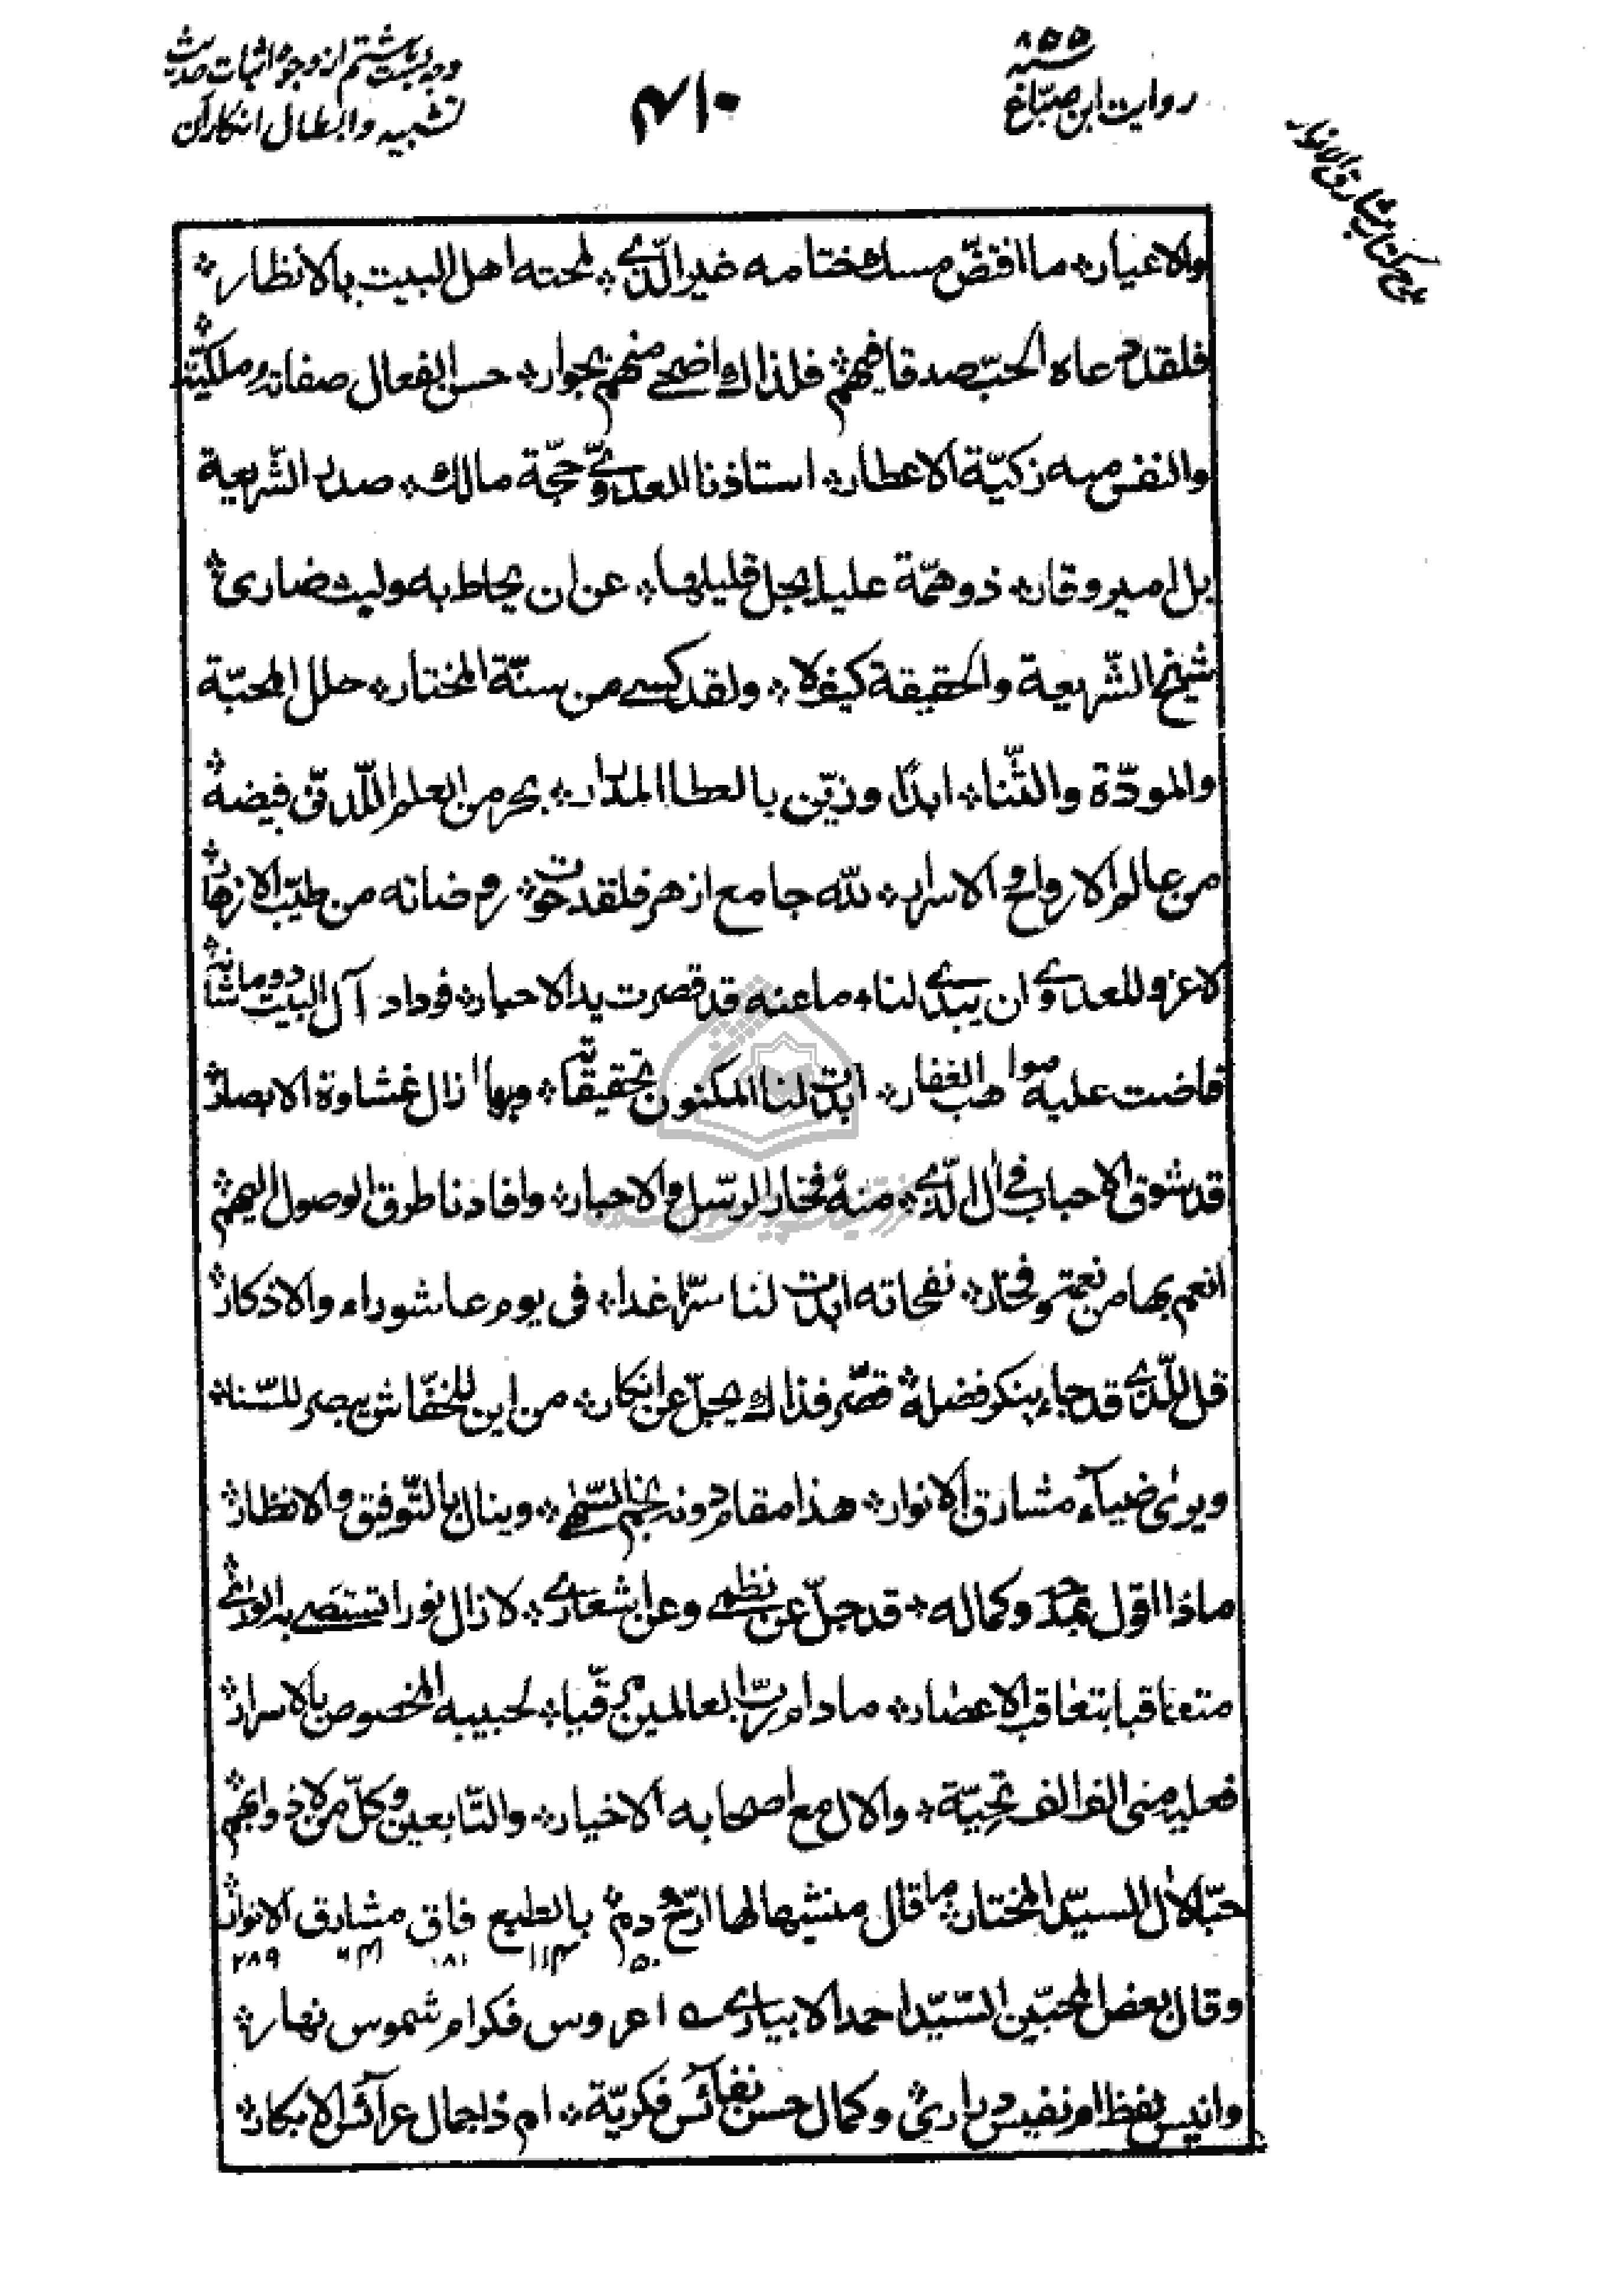 ۸۵۵
روایت ابن صبّاغ
۴۱۰
وجه بست هشتم از وجوه اثبات حدیث
تشبیه و ابطال انکار آن
مدح کتاب مشارق الانوار
والاعیار ما افتضّ مسك ختامه غیر الّذی لمحته اهل البیت بالانظار
فلقد دعاه الحبّ صدقا فیهم فلذاك اضحی منهم بجوار حسن الفعال صفاته وملکیّة
والنفس منه زکیّة الاعطار استاذنا العدوّی حجّة مالك صدر الشّریعة
بل امیر وقار ذو همّة علیا یجل قلیلها عن ان یحاط به ولیث ضاری
شیخ الشّریعة والحقیقة کیف لا ولقد کسی من سنّة المختار حلل المحبّة
والمودّة والثّنا ابدًا وزیّن بالعطا المدرار بحر من العلم اللّدنّی فیضه
من عالم الارواح والاسرار لله جامع ازهر فلقد حوت روضاته من طیّب الازهار
لا غرو للعدوی ان یبدی لنا ما عنه قد قصرت ید الاحبار فوداد آل البیت دوما شانه
فاضت علیه مواهب الغفار ابدت لنا المکنون تحقیقاته وبها ازال غشاوة الابصار
قد شوق الاحباب فی آل الّذی منه فخار الرّسل والاحبار وافادنا طرق الوصول الیهم
انعم بها من نعمة وفخار نفحاته ابدت لنا سرّا غدا فی یوم عاشوراء والاذکار
قل للّذی قد جاء ینکر فضله قصّر فذاك یجلّ عن انکار من این للخفّاش یبصر للسّنا
ویری ضیآء مشارق الانوار هذا مقام دونه نجم السّهی وینال بالتّوفیق والانظار
ماذا اقول بمجده وکماله قد جلّ عن نظمی وعن اشعاری لا زال نورا تستضی به الوری
متعاقبا بتعاقب الاعصار ما دام ربّ العالمین مرقّیا لحبیبه المخصوص بالاسرار
فعلیه منی الف الف تحیّة والال مع اصحابه الاخیار والتّابعین وکلّ من لاذوا بهم
حبّا لآل السیّد المختار ما قال منشیها لها ارّخ ودم بالطبع فاق مشارق الانوار
۵۰ ۱۱۴ ۱۸۱ ۶۴۱ ۲۸۹
وقال بعض المحبّین السّیّد احمد الابیاری اعروس فکر ام شموس نهار
وانیس لفظ ام نفیس دراری وکمال حسن نفائس فکریّة ام ذا جمال عرآئس الابکار